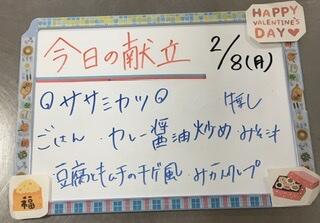 HAPPY
VALENTINE'S
DAY
今日の献立 2/8(月)
ササミカツ
ごはん・カレー醤油炒め・みそ汁
豆腐とキムチのチゲ風・みかんクレープ
福